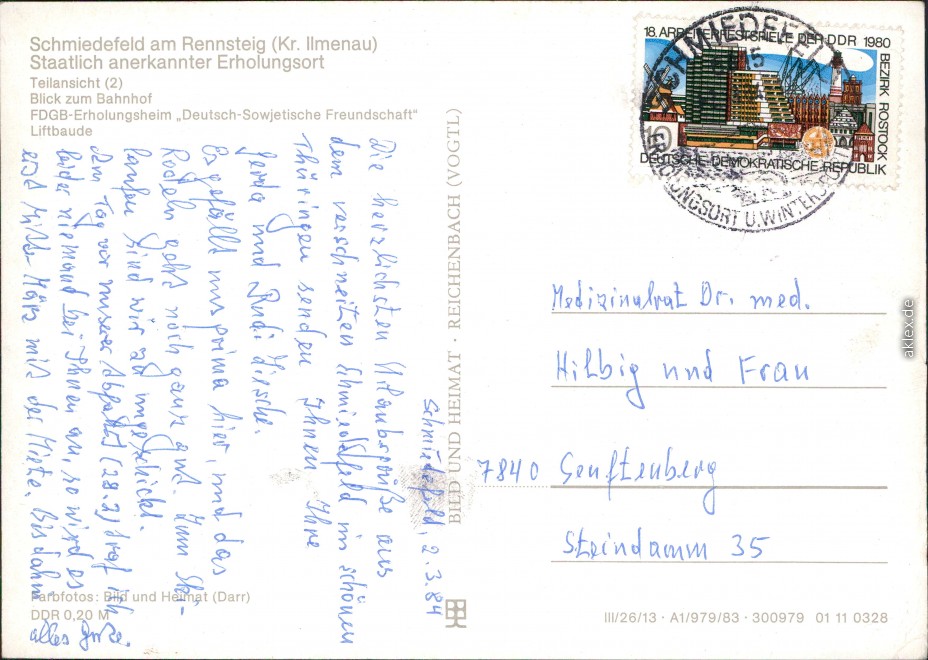 Schmiedefeld am Rennsteig (Kr. Ilmenau)
Staatlich anerkannter Erholungsort
Teilansicht (2)
Blick zum Bahnhof
FDGB-Erholungsheim „Deutsch-Sowjetische Freundschaft"
Liftbaude
18. ARBEITERFESTSPIELE DER DDR 1980
BEZIRK ROSTOCK
10
DEUTSCHE DEMOKRATISCHE REPUBLIK
SCHMIEDEFELD
ERHOLUNGSORT U. WINTERSP
Schmiedefeld, 2.3.84
Die herzlichsten Urlaubsgrüße aus
dem verschneiten Schmiedefeld im schönen
Thüringen senden Ihnen Ihre
Gerda und Rudi
Es gefällt uns prima hier, und das
Rodeln geht noch ganz gut. Zum Ski-
laufen sind wir zu ungeschickt.
Am Tag vor unserer Abfahrt (28.2) traf ich
leider niemand bei Ihnen an, so wird es
erst Mitte März mit der Miete. Bis dahin
alles Gute.
BILD UND HEIMAT · REICHENBACH (VOGTL)
Medizinalrat Dr. med.
Hilbig und Frau
7840 Senftenberg
Steindamm 35
Farbfotos: Bild und Heimat (Darr)
DDR 0,20 M
III/26/13 · A1/979/83 · 300979 01 11 0328
aklex.de